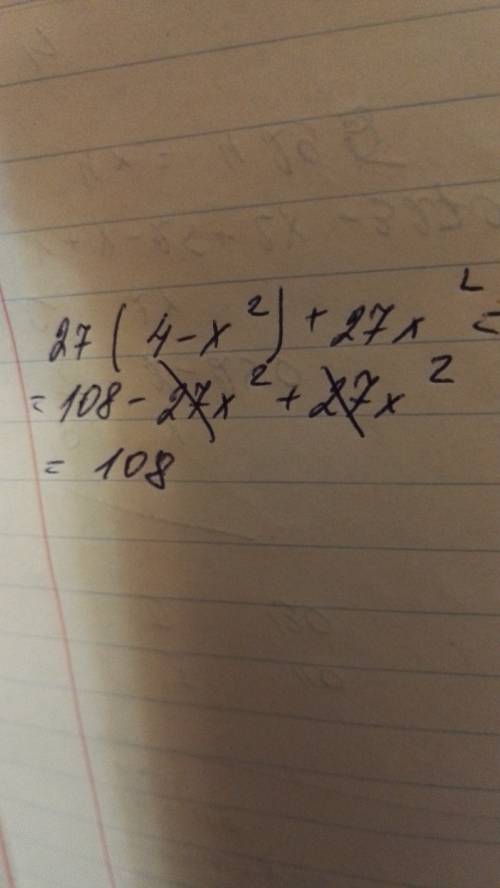 27(4-x²)+27x²=
=108-27x²+27x²
=108